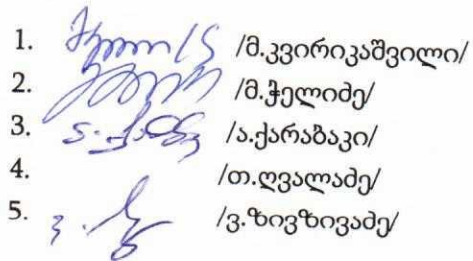 1. /მ.კვირიკაშვილი/
2. /მ.ჭელიძე/
3. /ა.ქარაბაკი/
4. /თ.ღვალაძე/
5. /ვ.ზივზივაძე/